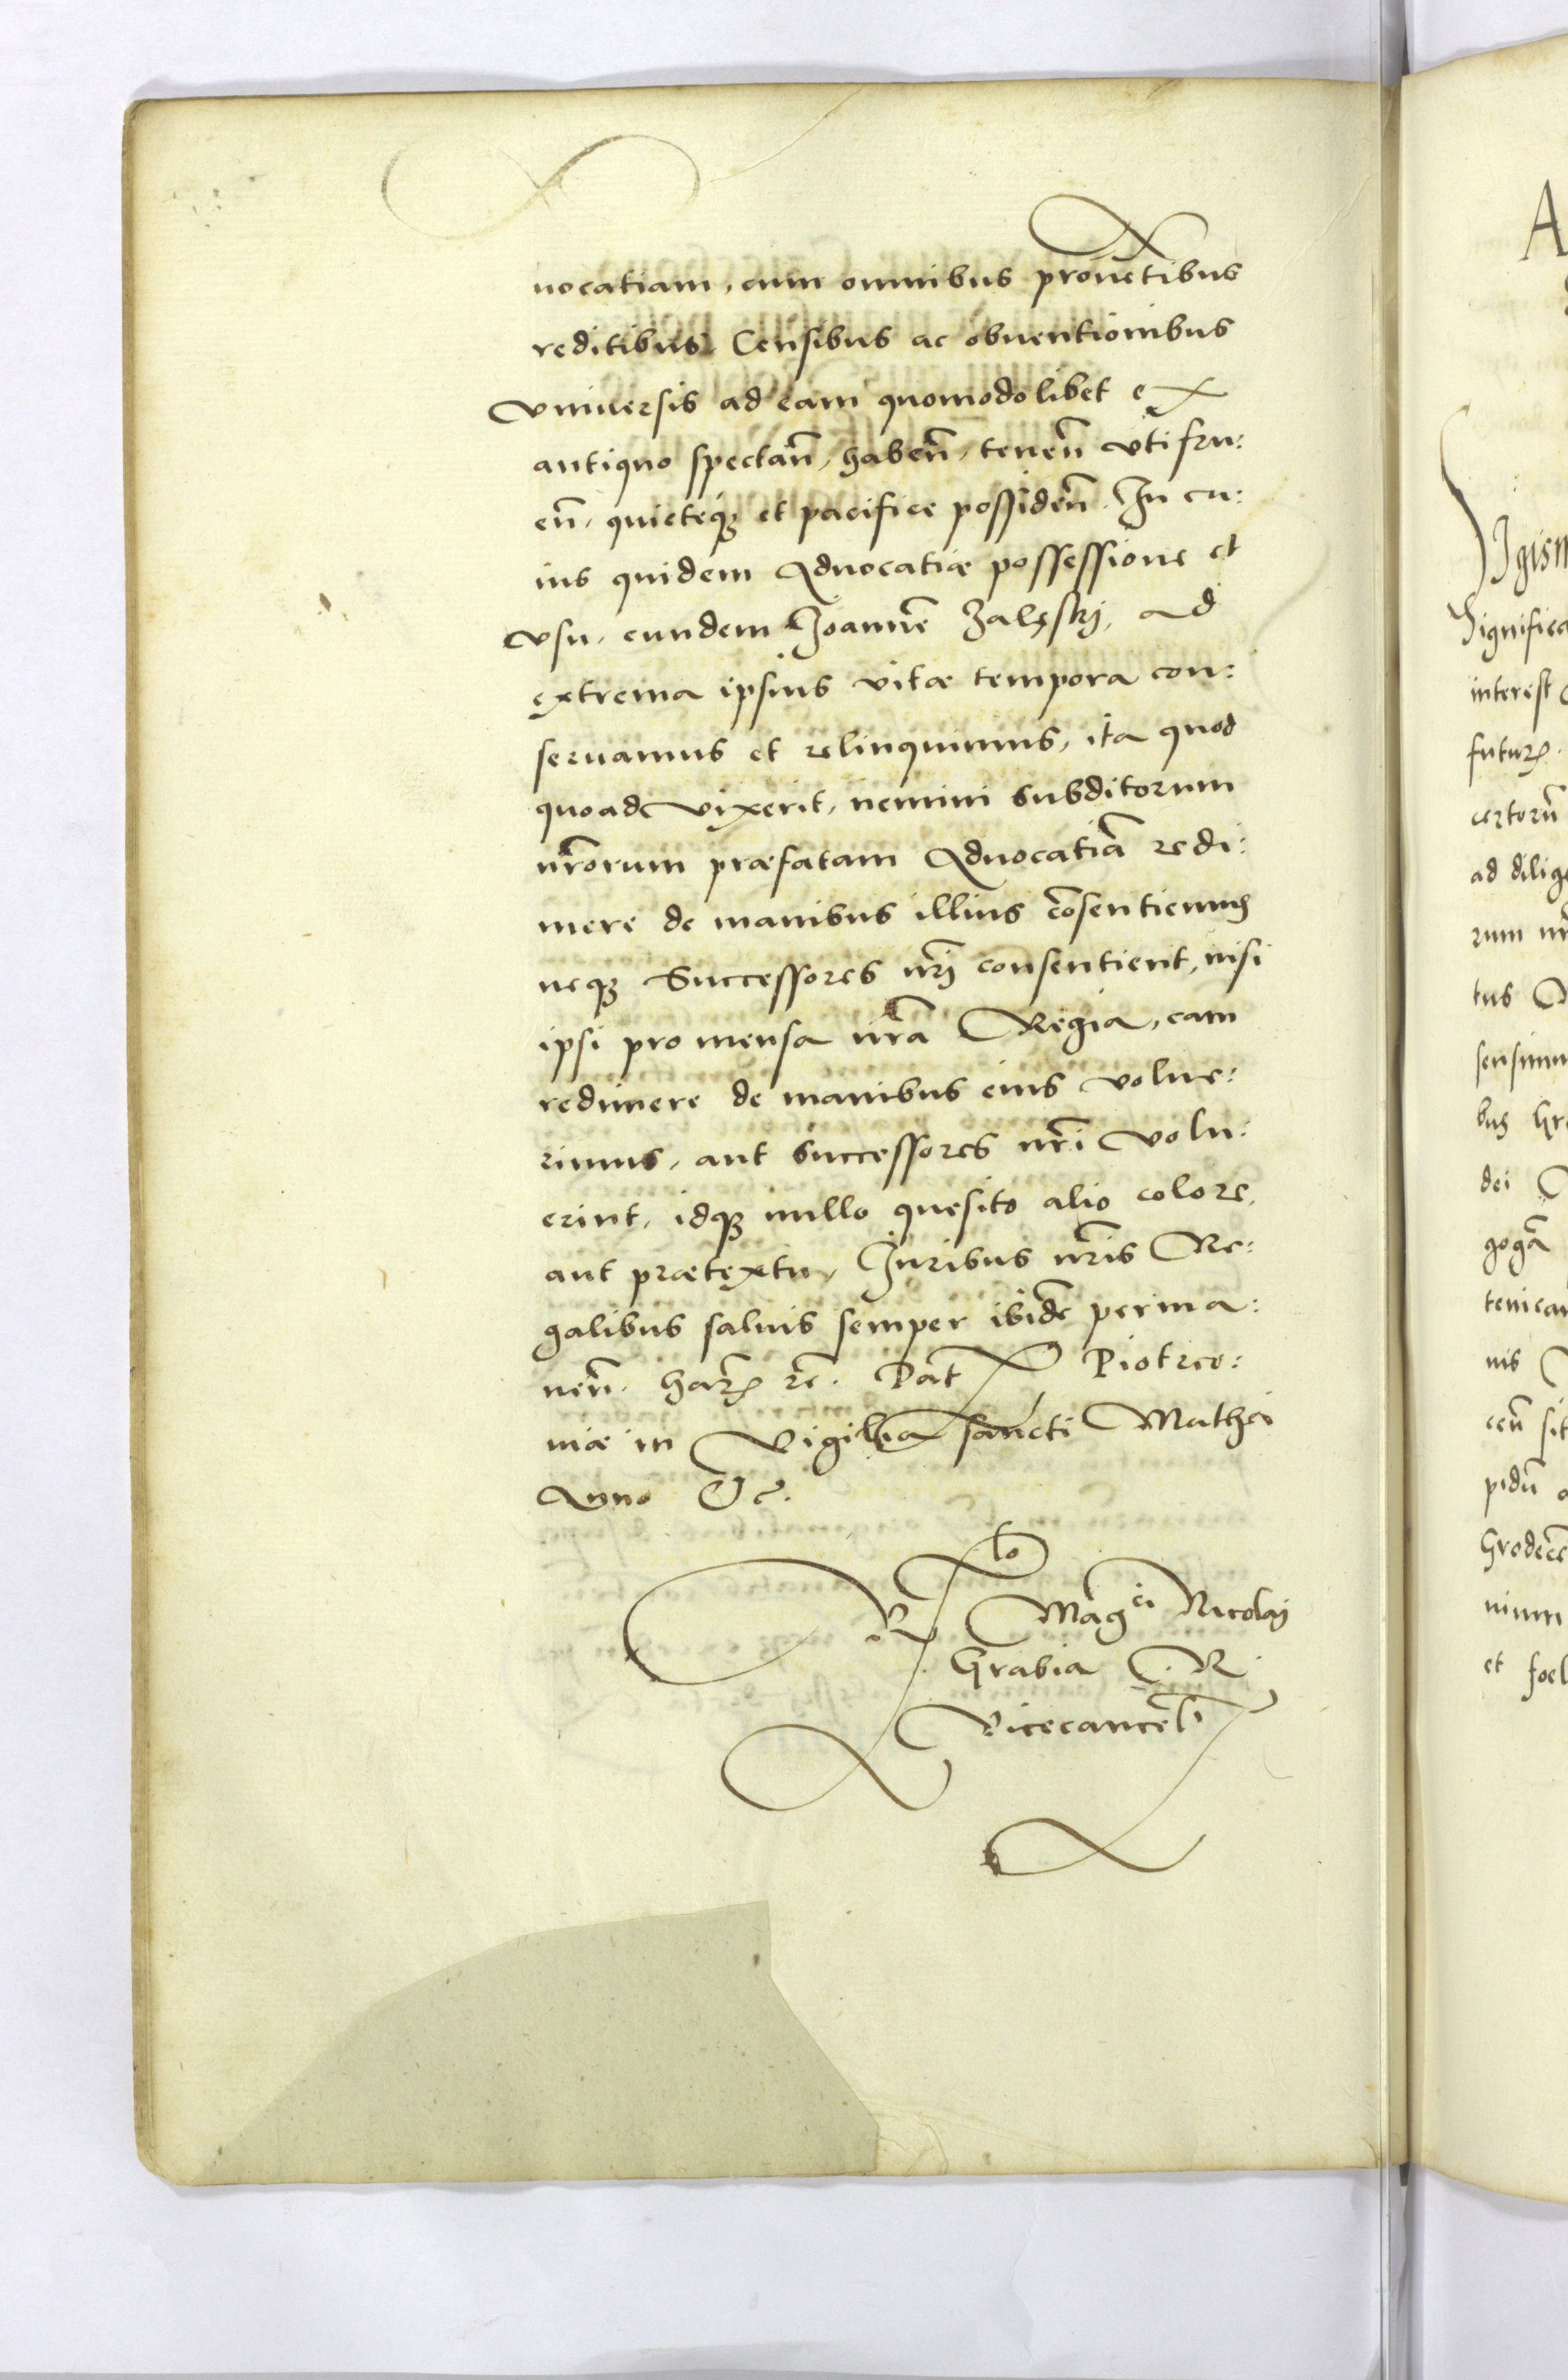 uocatiam, cum omnibus prouētibus
reditibus Censibus ac obuentionibus
Vniuersis ad eam quomodolibet ex
antiquo spectan̄, haben̄, tenen̄ vtifru:
en̄, quieteq₃ et pacifice possiden̄. In cu:
ius quidem Aduocatiæ possessione et
vsu, eundem Joannē Zalęskj, ad
extrema ipsius vitæ tempora con:
seruamus et relinquimus, ita quod
quoad vixerit, nemini subditorum
nr̄orum præfatam Aduocatiā redi:
mere de manibus illius cōsentiemus
neq₃ Successores nr̄i consentient, nisi
ipsi pro mensa nr̄a Regia, eam
redimere de manibus eius volue:
rimus, aut successores nr̄i volu:
erint, idq₃ nullo quesito alio colore,
aut prætextu, Juribus nr̄is Re:
galibus saluis semper ibidē perma:
nen̄. har̄ꝝ rē. Dat̄ Piotrco:
niæ in Vigilia sancti Mathei
Anno &c.
Rᵗᵒ Mag^ci Nicolaj
Grabia C. R.
Vicecancel̄i
A
Sigism
Significa
interest
futurꝝ.
certorū
ad dilige
rum nr̄
tus
sensimu
bus Gr
dei
gogā
tenicar
nis
cen̄ sit
pidū
Grodece
nium
et foel